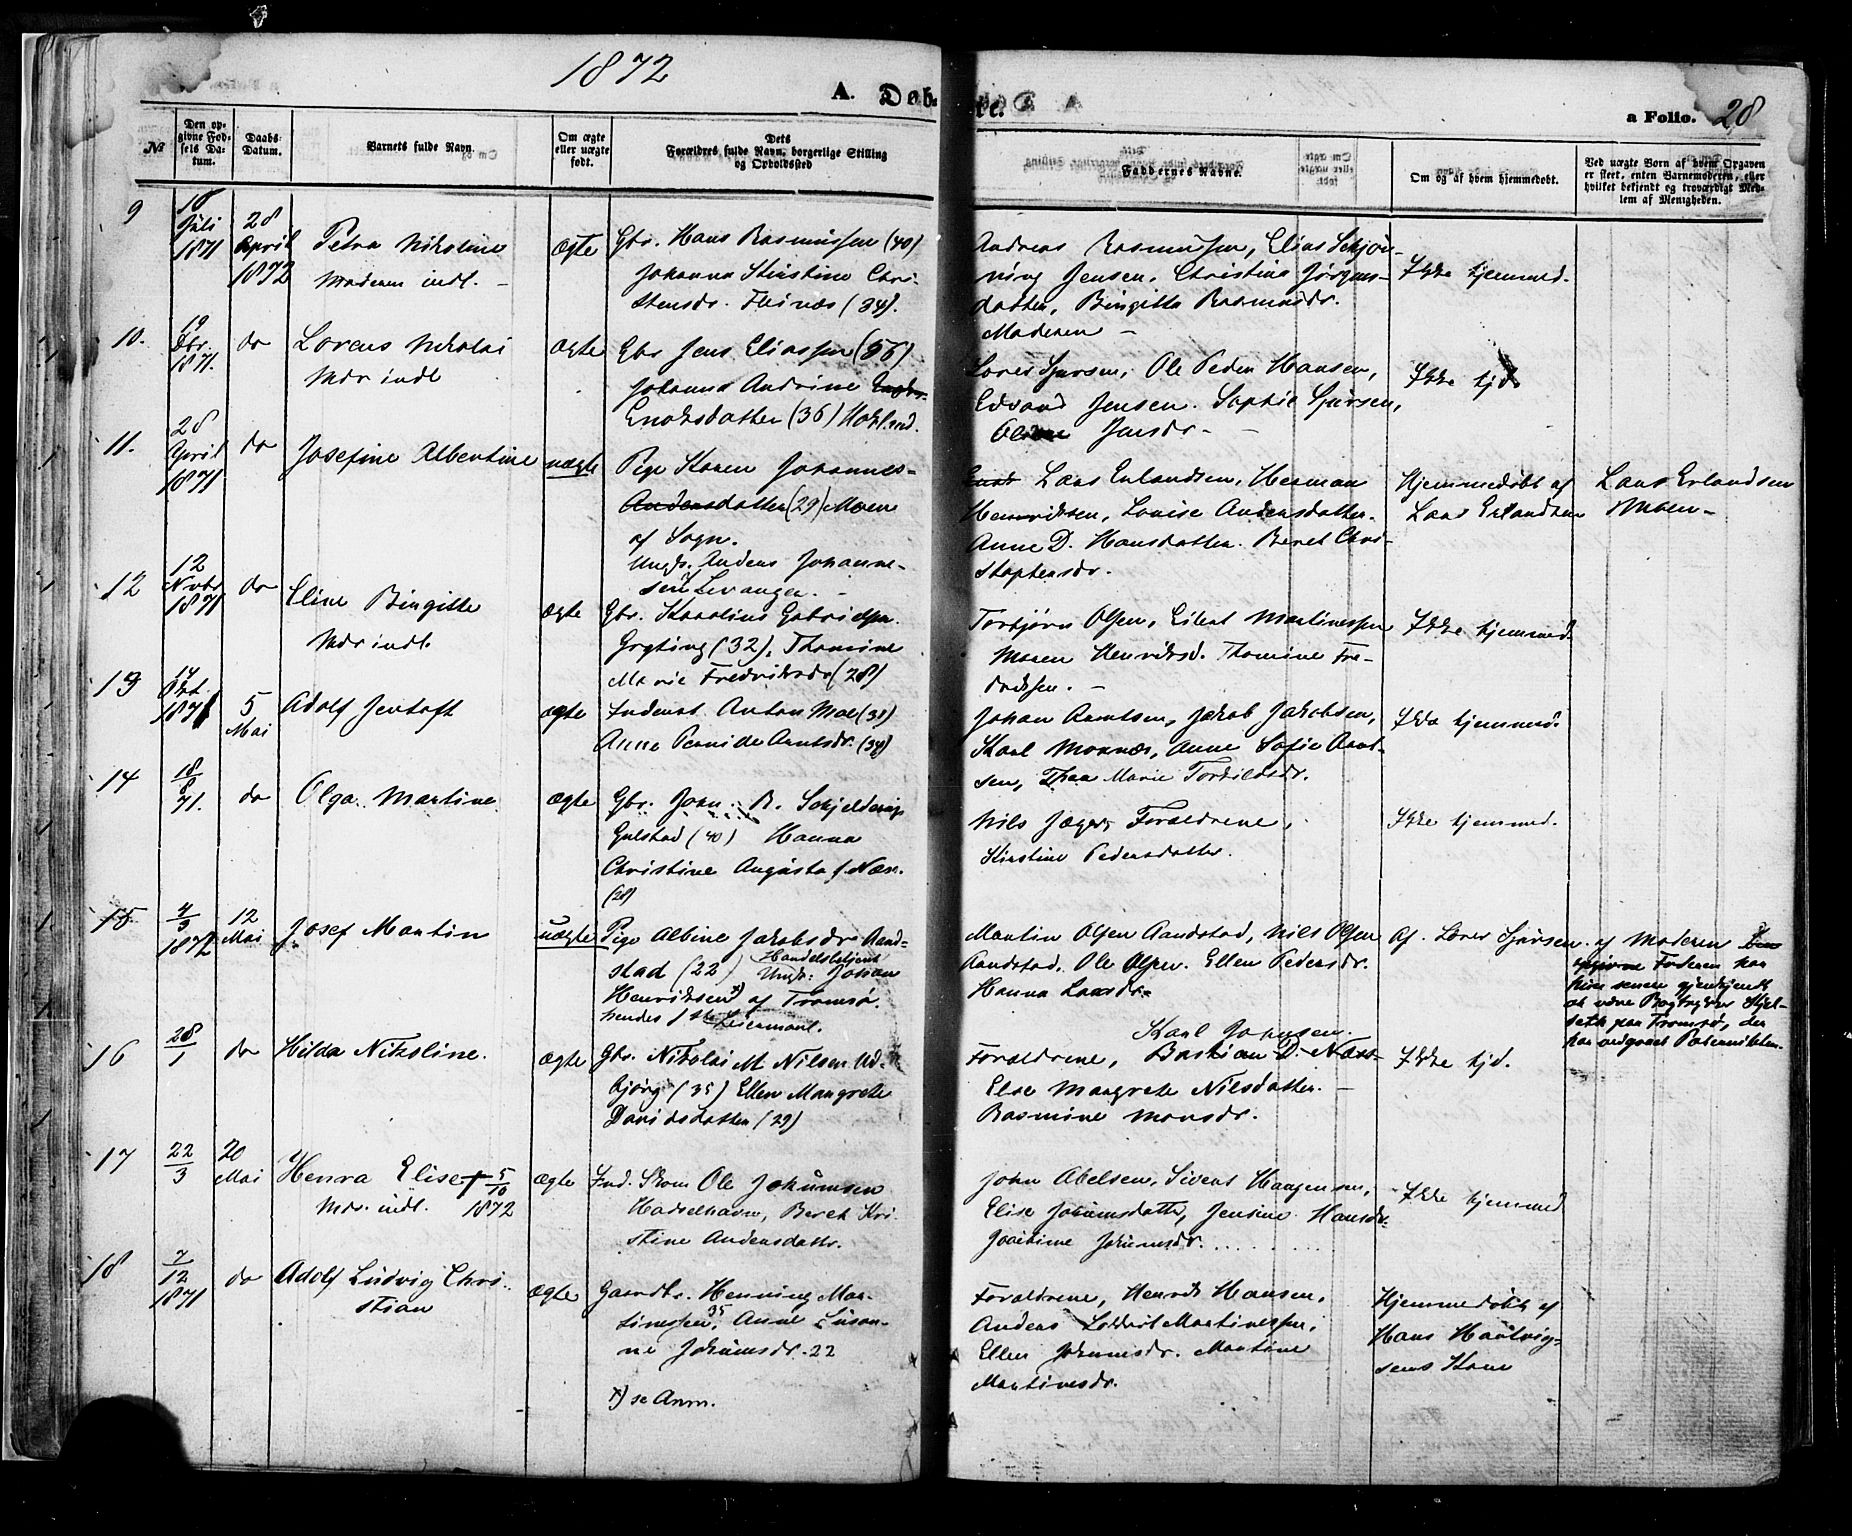 1872
A. Døb-
te.
a Folio. 28
№
Den op-
givne Fød-
sels Da-
tum.
Daabs-
Datum.
Barnets fulde Navn.
Om ægte
eller uægte
født.
Dets
Forældres fulde Navn, borgerlige Stilling
og Opholdssted
Faddernes Navne.
Om og af hvem hjemmedøbt.
Ved uægte Børn af hvem Opgaven
er skeet, enten Barnemoderen, eller
hvilket bekjendt og troværdigt Med-
lem af Menigheden.
9
18
Juli
1871
28
April
1872
Petra Nikoline
Moderen indl. -
ægte
Gbr. Hans Rasmussen (40)
Johanna Kirstine Chri-
stensdr. (34).
Andreas Rasmussen, Elias Schjøn-
ning Jensen, Christine Jørgens-
datter, Birgitte Rasmusdr.
Moderen -
Ikke hjemmed.
10.
19
1871.
do
Lorens Nikolai
Mdr indl
ægte
Gbr Jens Eliassen (56)
Johanna Andrine
Enoksdatter (36)
Lorens Sjursen, Ole Peder Hansen,
Edvard Jensen. Sophie Sjursen,
Oline Jensdr. -
Ikke hjd.
11.
28
April
1871
do
Josefine Albertine
uægte
Pige Karen Johannes-
Andersdatter (29) Moen
af Sogn.
Ungk. Anders Johanne-
sen Levanger. -
Lars Erlandsen, Herman
Henriksen, Lovise Andersdatter.
Anne D. Hansdatter. Beret Chri-
stophersdr.
Hjemmedøbt af
Lars Erlandsen
Lars Erlandsen
Moen -
12
12
Novbr
1871
do
Eline Birgitte
Mdr indl.
ægte
Gbr. Karolius Gabrielsen
(32), Thomine
Marie Fredriksdr (28)
Torbjørn Olsen, Eilert Martinessen
Maren Henriksd. Thomine Fre-
driksen. -
Ikke hjemmed.
13
14
Okt.
1871
5
Mai
Adolf Jentoft
ægte
Inderst Anton Moe (38)
Anne Pernille Arntsdr. (34)
Johan Arntsen, Jakob Jakobsen,
Karl Moxnæs, Anne Sofie Arnt-
sen, Thea Marie Torkildsdr.
Ikke hjemmed.
14
18
8
71.
do
Olga Martine
ægte
Gbr. John B. Schjelderup
Gulstad (40) Hanna
Christine Augusta f. Næs.
(28)
Nils Jæger, Forældrene,
Kirstine Pedersdatter.
Ikke hjemmed.
15
4
3
1872
12
Mai
Josef Martin
uægte
Pige Albine Jakobsdr Rand-
stad (22) Handelsbetjent
Ungk: Johan
Henriksen x) af Tromsø.
hendes 1ste Leiermaal.
Martin Olsen Randstad, Nils Olsen
Randstad. Ole Olsen. Ellen Pedersdr.
Hanna Larsdr.
Af Lorens Sjursen.
af Moderen Den
opgivne Faderen har
hun senere gjenkjendt
at være Bogtrykker Kjel-
seth paa Tromsø, der
har vedgaaet Paterniteten.
16
28
1
do
Hilda Nikoline.
ægte
Gbr. Nikolai M. Nilsen Ud-
bjørg (35) Ellen Margrete
Davidsdatter (29)
Karl Johnsen.
Forældrene, Bastian D. Næss
Else Margrete Nilsdatter. -
Rasmine Monsdr.
Ikke hjd.
17
22
3
20
Mai
Henra Elise † 5
10
Mdr. indl. 1872
ægte
Ind. Skom Ole Johnmsen
Hasselhavn, Beret Kri-
stine Andersdatter.
John Abelsen, Sivert Haagensen,
Elise Johnmsdatter, Jensine Hansdr
Johnmsdr.
Ikke hjemmed
18
7
12
1871
do
Adolf Ludvig Chri-
stian
ægte
Gaardbr. Henning Mar-
tinessen 35, Anne Susan-
ne Johnmsdr. 22
x) se Anm.
Forældrene, Henrik Hansen,
Anders Martinessen,
Ellen Johnmsdr. Martine
Martinesdr.
Hjemmedøbt af
Hans Hartvig-
sens Kone